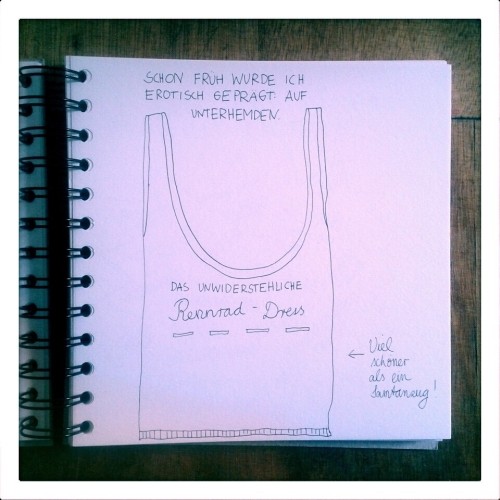 SCHON FRÜH WURDE ICH
EROTISCH GEPRÄGT: AUF
UNTERHEMDEN.
DAS UNWIDERSTEHLICHE
Rennrad - Dress
← Viel
schöner
als ein
Samtanzug!